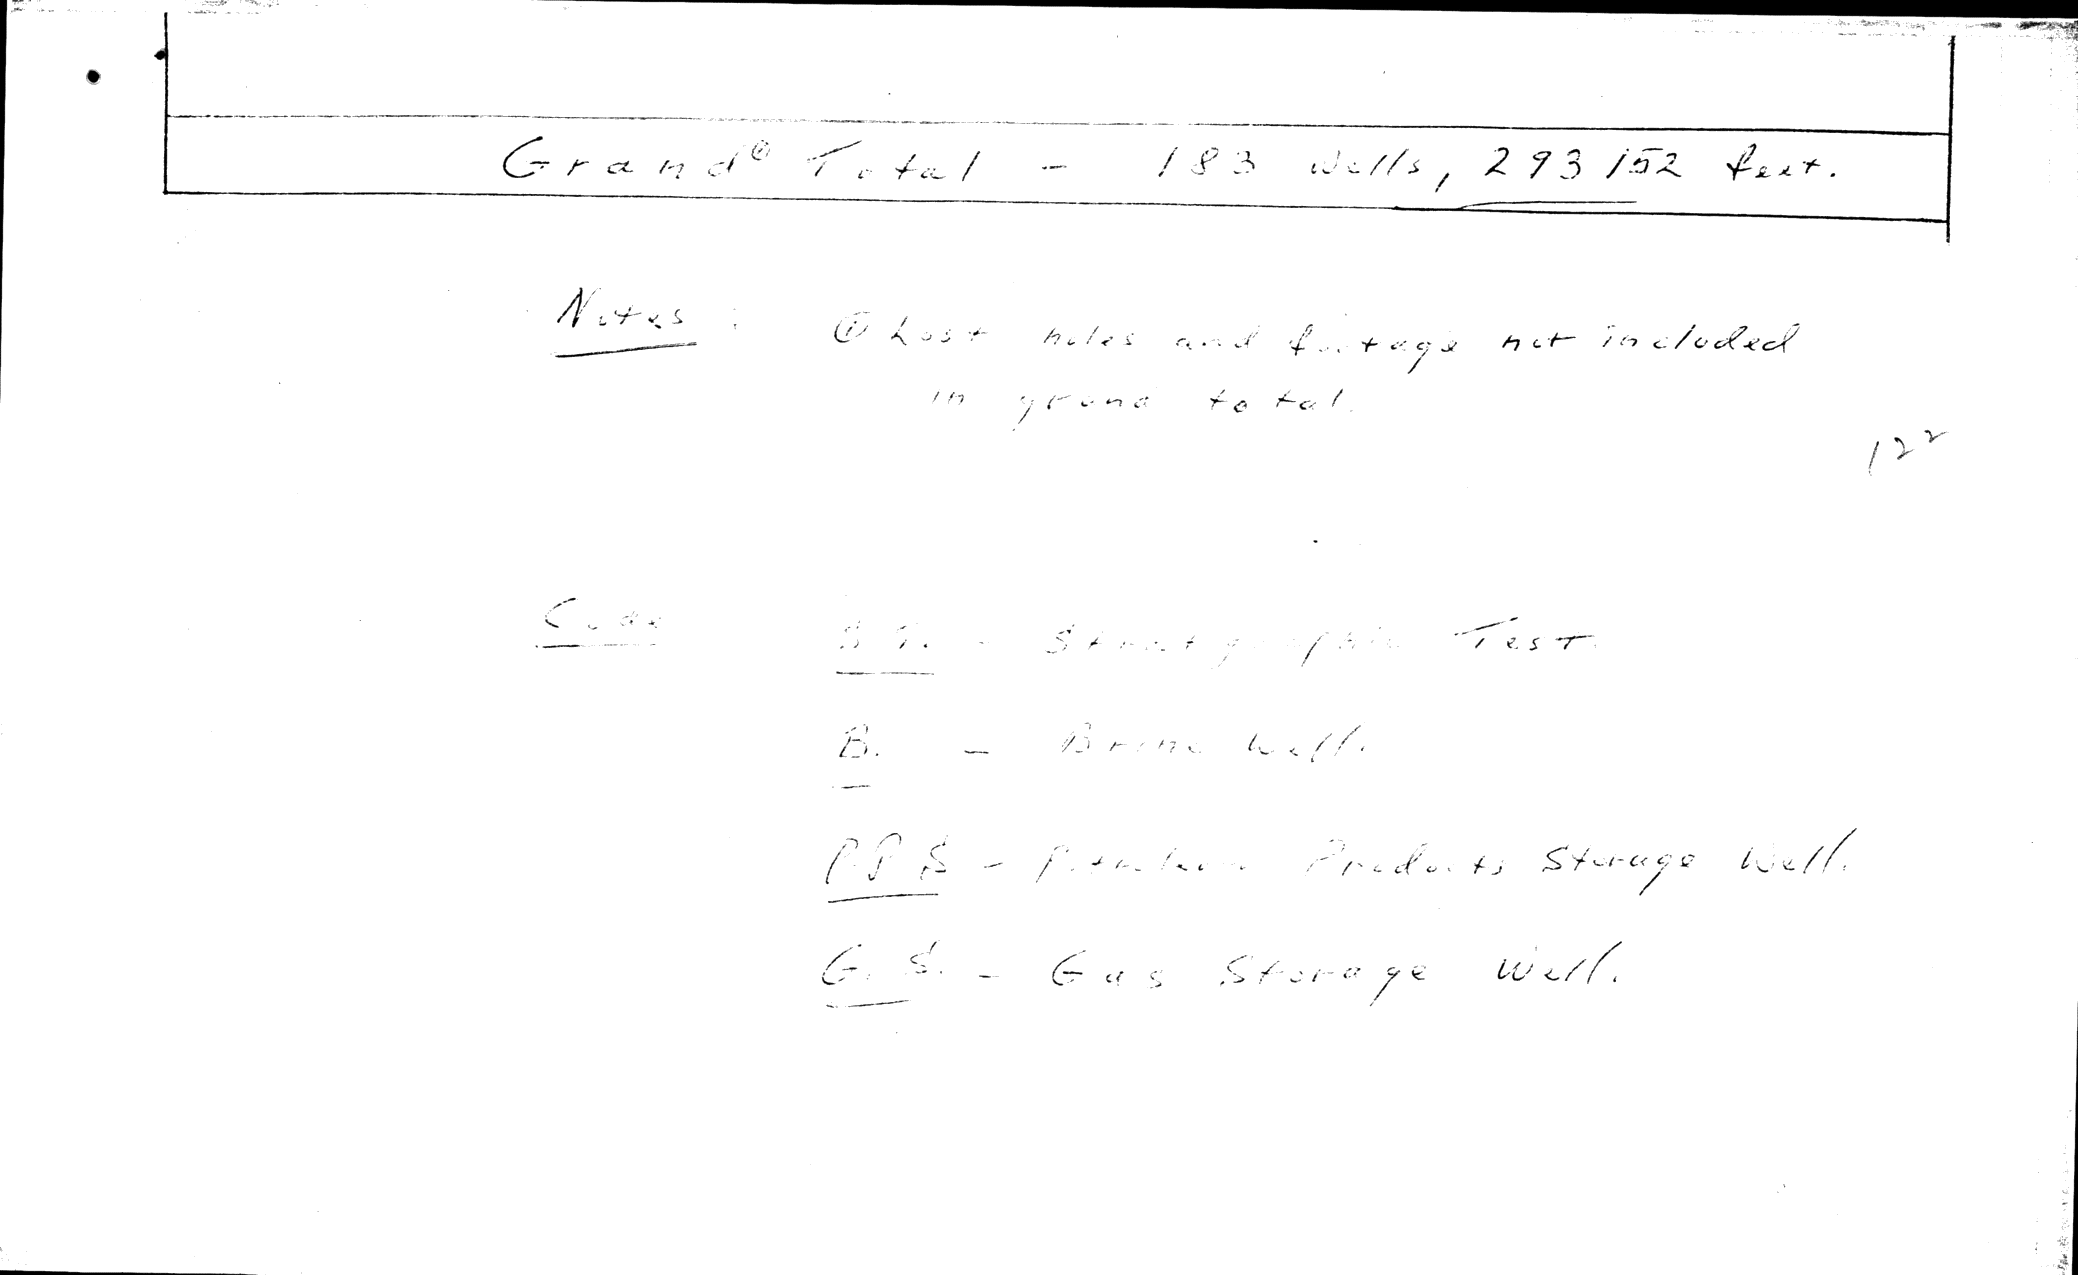 Grand ① Total - 183 Wells, 293152 feet.
Notes: ① Lost holes and footage not included
in grand total.
122
Code S.T. - Stratigraphic Test.
B. - Brine Well.
P.P.S - Petroleum Products Storage Well.
G.S. - Gas Storage Well.